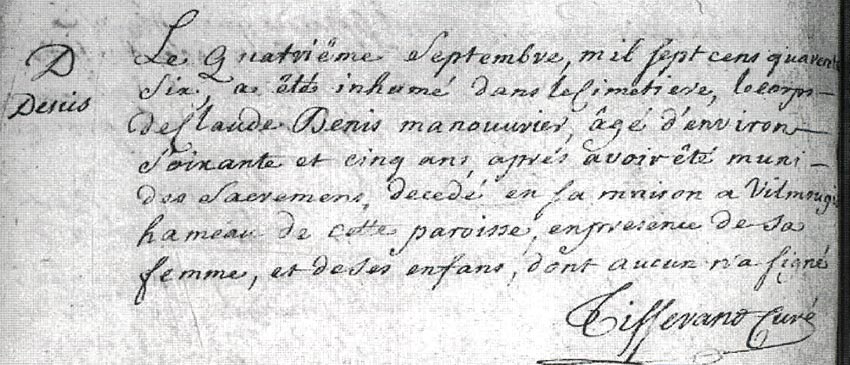 D
Denis
Le Quatriême Septembre, mil sept cens quarente
Six, a êté inhumé dans le Cimetiere, le corps
de Claude Denis manouvrier, âgé d'environ
Soixante et cinq ans, aprés avoir êté muni
des Sacremens, decedé en sa maison a Vilmoug
hameau de cette paroisse, en presence de Sa
femme, et de Ses enfans, dont aucun n'a signé
Tisserand Curé